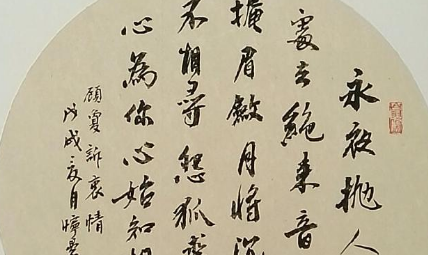 永夜抛人
處去絶來音
掩眉斂月將沉
不相尋怨孤衾
心為你心始知相
顧夐訴衷情
戊戌夏月婷